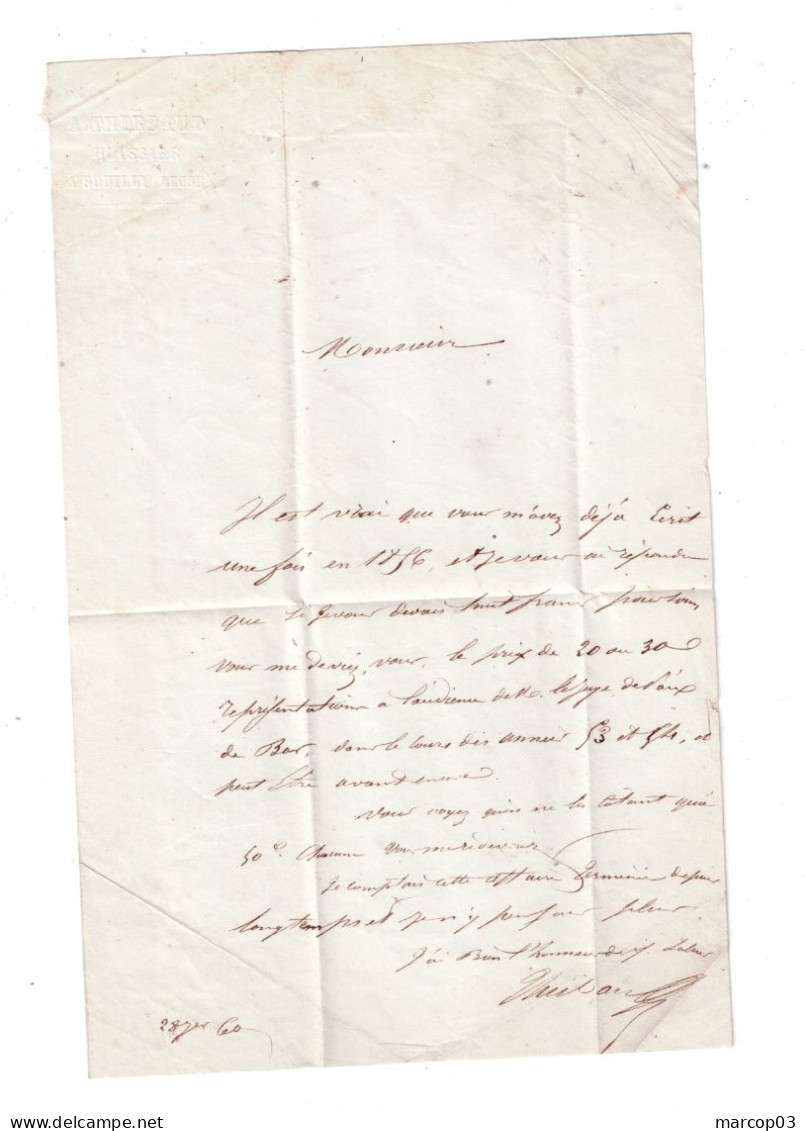 A. THIÉBAUT
HUISSIER
A SOUILLY MEUSE
Monsieur
Il est vrai que vous m'avez déjà Ecrit
une fois en 1856, et je vous ai répondu
que si je vous devais huit francs pour
vous me devriez, vous, le prix de 20 ou 30
représentations a l'audience de M. le juge de Paix
de Bar, dans le cours des années 53 et 54, et
peut être avant encore.
vous voyez qu'en ne les cotant qu'à
50c. chacune vous me redevriez
Je comptais cette affaire Terminée depuis
longtemps et je n'y pensais plus.
J'ai Bien l'honneur de vs. saluer
Thiébaut
28 jer 60
marcop03